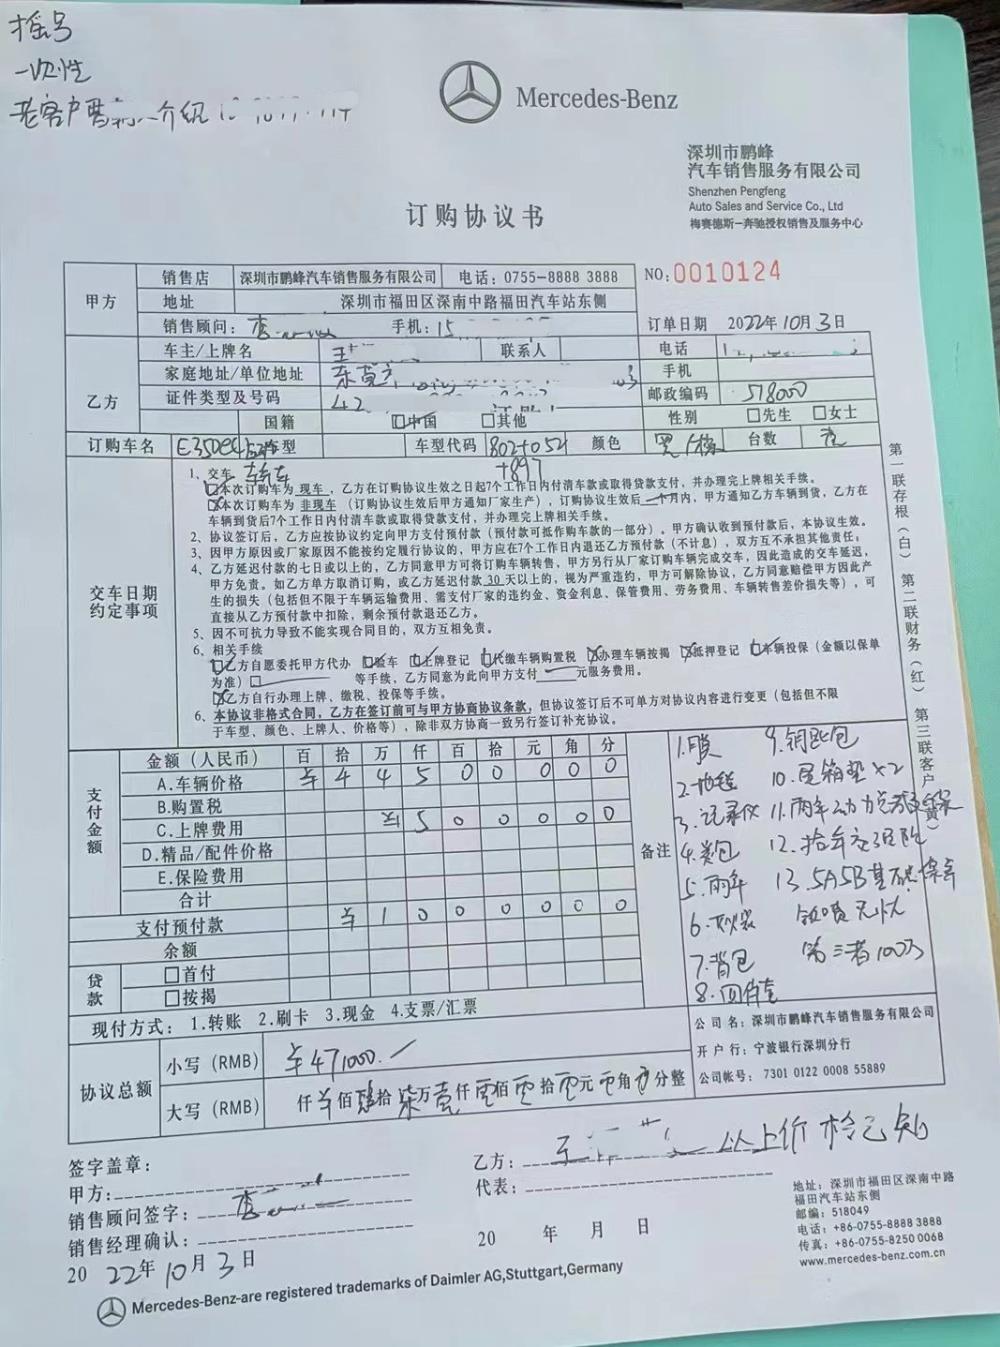 摇号
一次性
老客户曹 介绍
Mercedes-Benz
深圳市鹏峰
汽车销售服务有限公司
Shenzhen Pengfeng
Auto Sales and Service Co., Ltd
梅赛德斯-奔驰授权销售及服务中心
订购协议书
NO:0010124
订单日期 2022年10月3日
甲方
销售店 深圳市鹏峰汽车销售服务有限公司 电话: 0755-8888 3888
地址 深圳市福田区深南中路福田汽车站东侧
销售顾问: 李 手机: 15
乙方
车主/上牌名 王 联系人 电话 1
家庭地址/单位地址 东莞市 手机
证件类型及号码 42 邮政编码 518000
国籍 □中国 □其他 性别 □先生 □女士
订购车名 E350e 车型 车型代码 802+052 +897 颜色 黑/棕 台数 壹
交车日期
约定事项
1、交车
□本次订购车为 现车,乙方在订购协议生效之日起7个工作日内付清车款或取得贷款支付,并办理完上牌相关手续。
□本次订购车为 非现车(订购协议生效后甲方通知厂家生产),订购协议生效后一个月内,甲方通知乙方车辆到货,乙方在
车辆到货后7个工作日内付清车款或取得贷款支付,并办理完上牌相关手续。
2、协议签订后,乙方应按协议约定向甲方支付预付款(预付款可抵作购车款的一部分)。甲方确认收到预付款后,本协议生效。
3、因甲方原因或厂家原因不能按约定履行协议的,甲方应在7个工作日内退还乙方预付款(不计息),双方互不承担其他责任;
4、乙方延迟付款的七日或以上的,乙方同意甲方可将订购车辆转售,甲方另行从厂家订购车辆完成交车,因此造成的交车延迟,
甲方免责。如乙方单方取消订购,或乙方延迟付款30天以上的,视为严重违约,甲方可解除协议,乙方同意赔偿甲方因此产
生的损失(包括但不限于车辆运输费用、需支付厂家的违约金、资金利息、保管费用、劳务费用、车辆转售差价损失等),可
直接从乙方预付款中扣除,剩余预付款退还乙方。
5、因不可抗力导致不能实现合同目的,双方互相免责。
6、相关手续
□乙方自愿委托甲方代办 □验车 □上牌登记 □代缴车辆购置税 □办理车辆按揭 □抵押登记 □车辆投保(金额以保单
为准)□ 等手续,乙方同意为此向甲方支付 元服务费用。
□乙方自行办理上牌、缴税、投保等手续。
6、本协议非格式合同,乙方在签订前可与甲方协商协议条款,但协议签订后不可单方对协议内容进行变更(包括但不限
于车型、颜色、上牌人、价格等),除非双方协商一致另行签订补充协议。
第一联存根(白) 第二联财务(红) 第三联客户(黄)
支付金额
金额(人民币) 百 拾 万 仟 百 拾 元 角 分
A.车辆价格 ¥ 4 4 5 0 0 0 0 0
B.购置税
C.上牌费用 ¥ 5 0 0 0 0 0
D.精品/配件价格
E.保险费用
合计
支付预付款 ¥ 1 0 0 0 0 0 0
余额
贷款
□首付
□按揭
备注
1.膜
2.地毯
3.记录仪
4.美包
5.雨伞
6.
7.背包
8.
9.钥匙包
10.尾箱垫×2
11.两年
12.
13.5A5B基础保养
第三者100万
现付方式: 1.转账 2.刷卡 3.现金 4.支票/汇票
协议总额
小写(RMB) ¥471000.
大写(RMB) 仟¥佰肆拾柒万壹仟零佰零拾零元零角零分整
公司名: 深圳市鹏峰汽车销售服务有限公司
开户行: 宁波银行深圳分行
公司帐号: 7301 0122 0008 55889
签字盖章:
甲方:
销售顾问签字: 李
销售经理确认:
2022年10月3日
乙方: 王 以上价格已知
代表:
20 年 月 日
地址: 深圳市福田区深南中路
福田汽车站东侧
邮编: 518049
电话: +86-0755-8888 3888
传真: +86-0755-8250 0068
www.mercedes-benz.com.cn
Mercedes-Benz-are registered trademarks of Daimler AG,Stuttgart,Germany